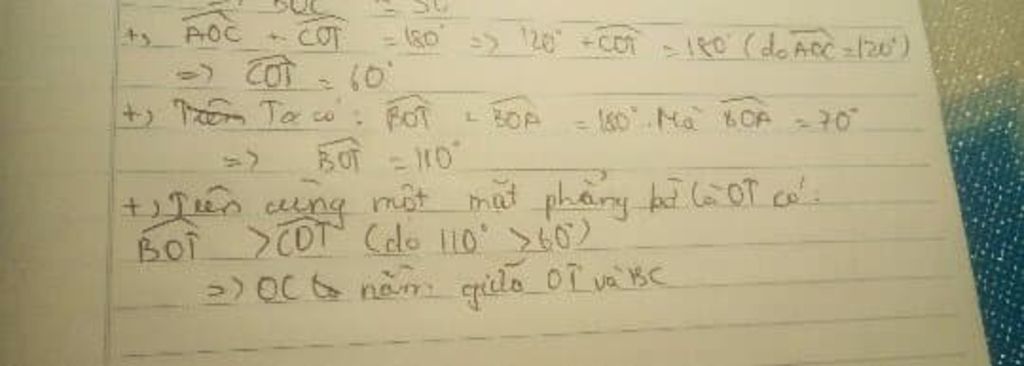 BOC = 50
+, AOC + COT = 180° => 120° + COT = 180° (do AOC = 120°)
=> COT = 60°
+, Ta có: BOT + BOA = 180°. Mà BOA = 70°
=> BOT = 110°
+, Trên cùng một mặt phẳng bờ là OT có:
BOT > COT (do 110° > 60°)
=> OC nằm giữa OT và BC